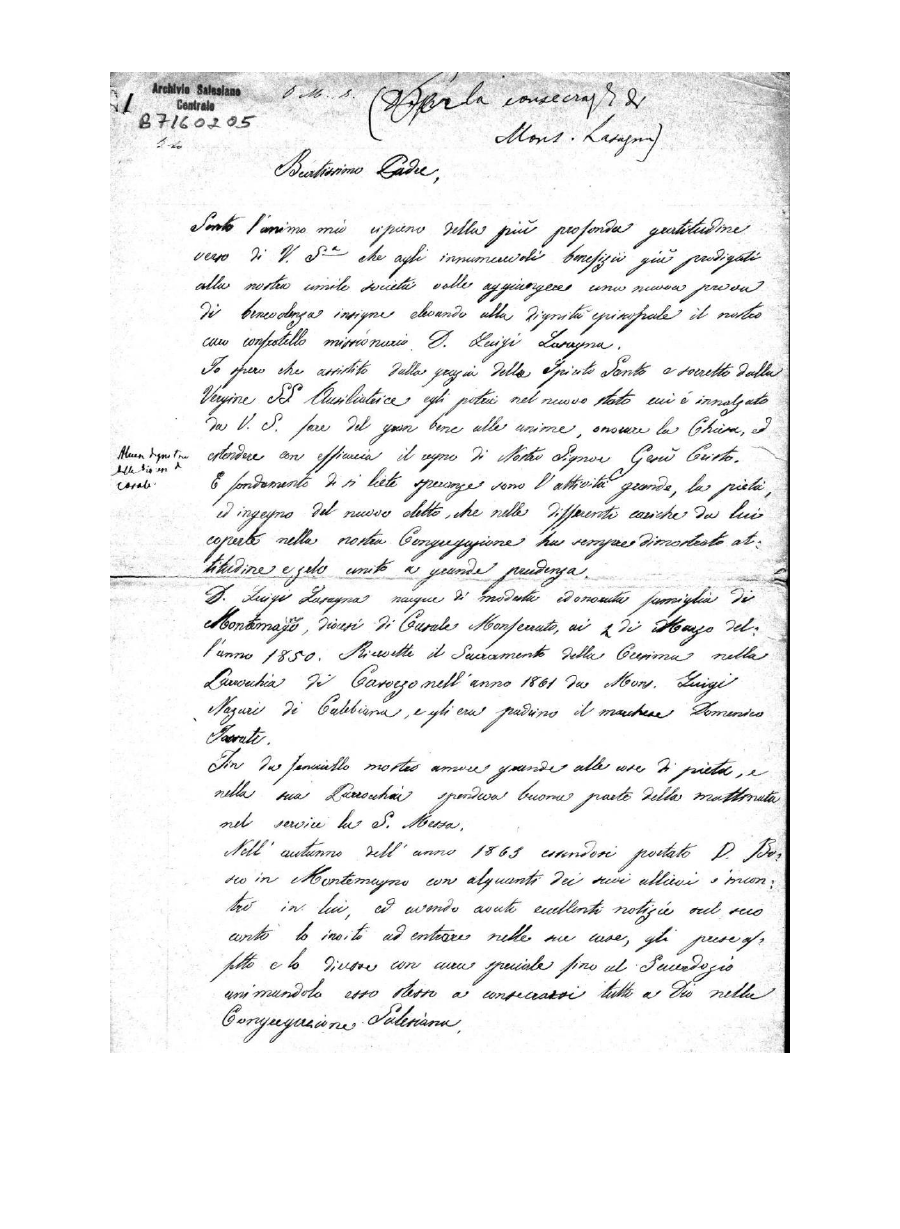 Archivio Salesiano
Centrale
B7160205
(Dopo la consacraz. di
Mons. Lasagna)
Beatissimo Padre,
Sento l'animo mio ripieno della più profonda gratitudine
verso di V. S.a che agli innumerevoli benefizii già prodigati
alla nostra umile società volle aggiungere una nuova prova
di benevolenza insigne elevando alla dignità episcopale il nostro
caro confratello missionario D. Luigi Lasagna.
Io spero che assistito dalla grazia dello Spirito Santo e sorretto dalla
Vergine SS. Ausiliatrice egli potrà nel nuovo stato cui è innalzato
da V. S. fare del gran bene alle anime, onorare la Chiesa, ed
estendere con efficacia il regno di Nostro Signor Gesù Cristo.
E fondamento di sì liete speranze sono l'attività grande, la pietà,
ed ingegno del nuovo eletto, che nelle differenti cariche da lui
coperte nella nostra Congregazione ha sempre dimostrato at-
titudine e zelo unito a grande prudenza.
D. Luigi Lasagna nacque di modesta ed onorata famiglia di
Montemagno, diocesi di Casale Monferrato, ai 2 di Marzo del-
l'anno 1850. Ricevette il Sacramento della Cresima nella
Parrocchia di Casorzo nell'anno 1861 da Mons. Luigi
Nazari di Calabiana, e gli era padrino il marchese Domenico
Fin da fanciullo mostrò amore grande alle cose di pietà, e
nella sua Parrocchia spendeva buona parte della mattinata
nel servire la S. Messa.
Nell' autunno dell' anno 1863 essendosi portato D. Bo-
sco in Montemagno con alquanti dei suoi allievi s'incon-
trò in lui, ed avendo avute eccellenti notizie sul suo
conto lo invitò ad entrare nelle sue case, gli prese af-
fetto e lo diresse con cura speciale fino al Sacerdozio
animandolo esso stesso a consecrarsi tutto a Dio nella
Congregazione Salesiana.